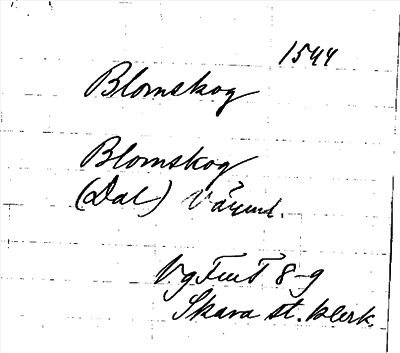 1544
Blomskog
Blomskog
(Dal)
8-9
Skara st. klerk.